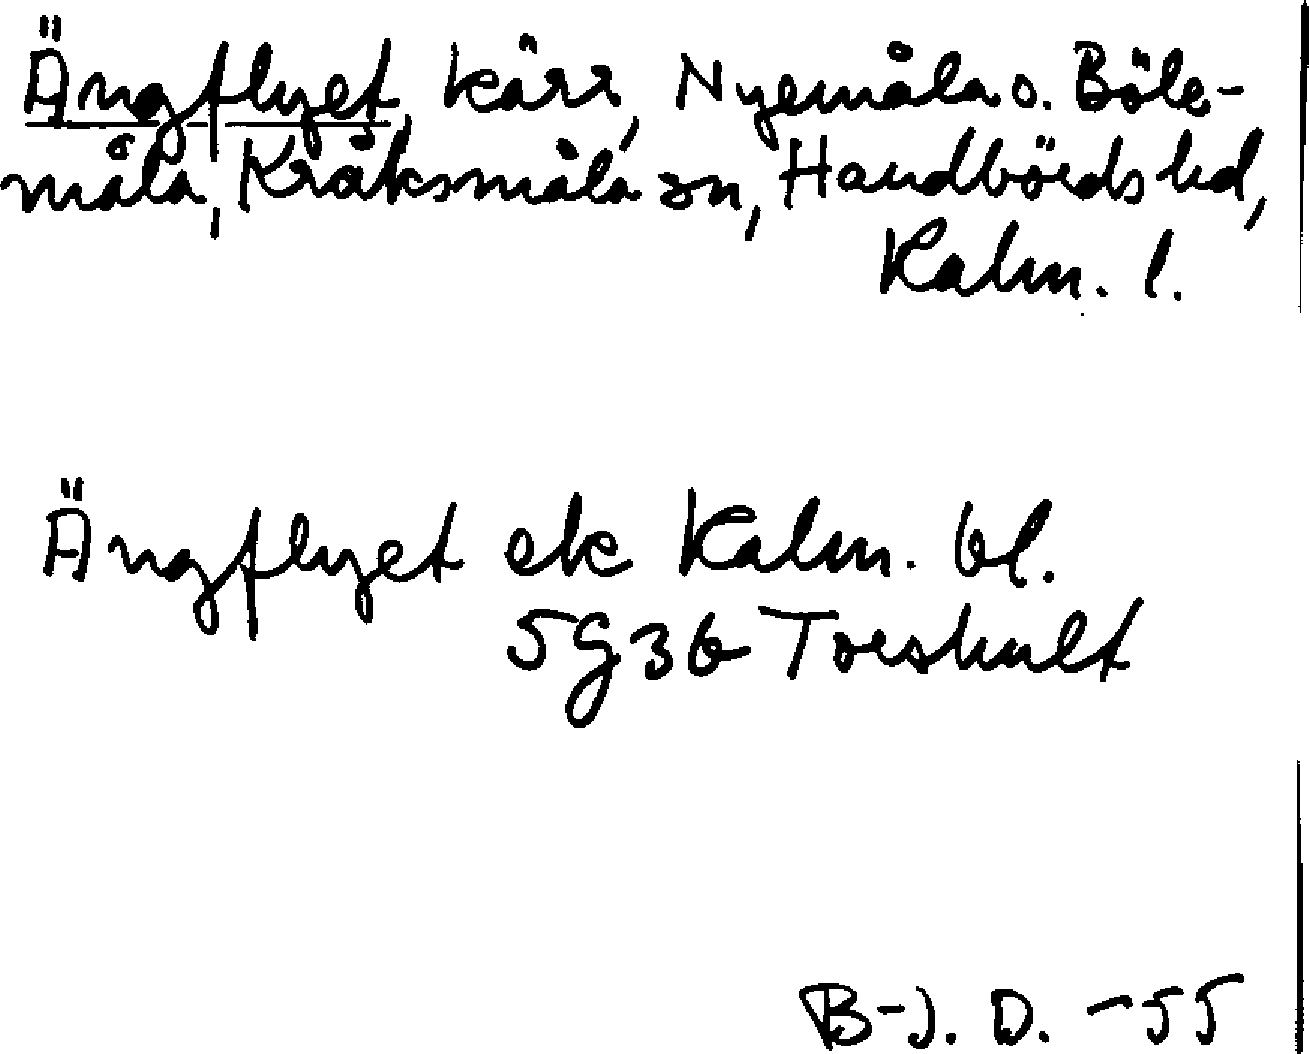 Ängflyet, kärr, Nyemåla o. Böle-
måla, Kråksmåla sn, Handbörds hd,
Kalm. l.
Ängflyet ek Kalm. bl.
5G3b Toreshult
B-J. D. -55